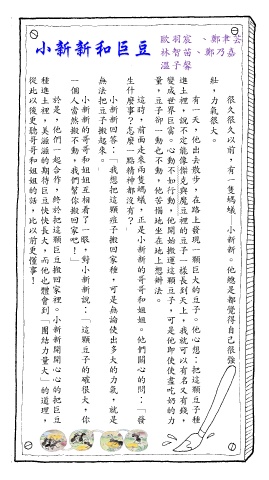 小新新和巨豆
歐羽宸、鄭聿芸
林智苗、鄭乃嘉
溫子馨
很久很久以前,有一隻螞蟻——小新新。他總是都覺得自己很強
壯,力氣很大。
有一天,他出去散步,在路上發現一顆巨大的豆子。他心想:把這顆豆子種
進土裡,說不定能像傑克與魔豆裡的豆子一樣長到天上,我就可以有名又有錢,
變成世界巨富。心動不如行動,他開始搬運這顆豆子,可是他即使使盡吃奶的力
量,豆子卻一動也不動,他苦惱地坐在地上想辦法。
這時,前面走來兩隻螞蟻,正是小新新的哥哥和姐姐。他們關心的問:「發
生什麼事?怎麼一點精神都沒有?」
小新新回答:「我想把這顆豆子搬回家種,可是無論使出多大的力氣,就是
無法把豆子搬起來。」
小新新的哥哥和姐姐互相看了一眼,對小新新說:「這顆豆子的確很大,你
一個人當然搬不動,我們幫你搬回家吧!」
於是,他們一起合作,終於把這顆巨豆搬回家裡。小新新開開心心的把巨豆
種進土裡,美滋滋的期待巨豆快快長大,而他也體會到「團結力量大」的道理,
從此以後更聽哥哥和姐姐的話,比以前更懂事!